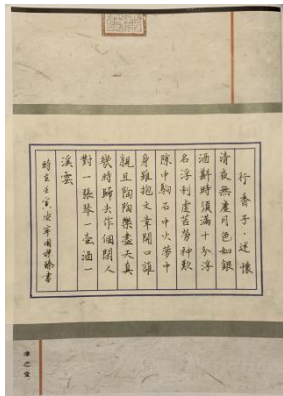 行香子·述懷
清夜無塵月色如銀
酒斟時須滿十分浮
名浮利虛苦勞神歎
隙中駒石中火夢中
身雖抱文章開口誰
親且陶陶樂盡天真
幾時歸去作個閒人
對一張琴一壺酒一
溪雲
時在壬寅安寧書
之堂